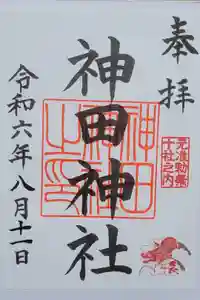 奉拝
元准勅祭
十社之内
神田神社
令和六年八月十一日